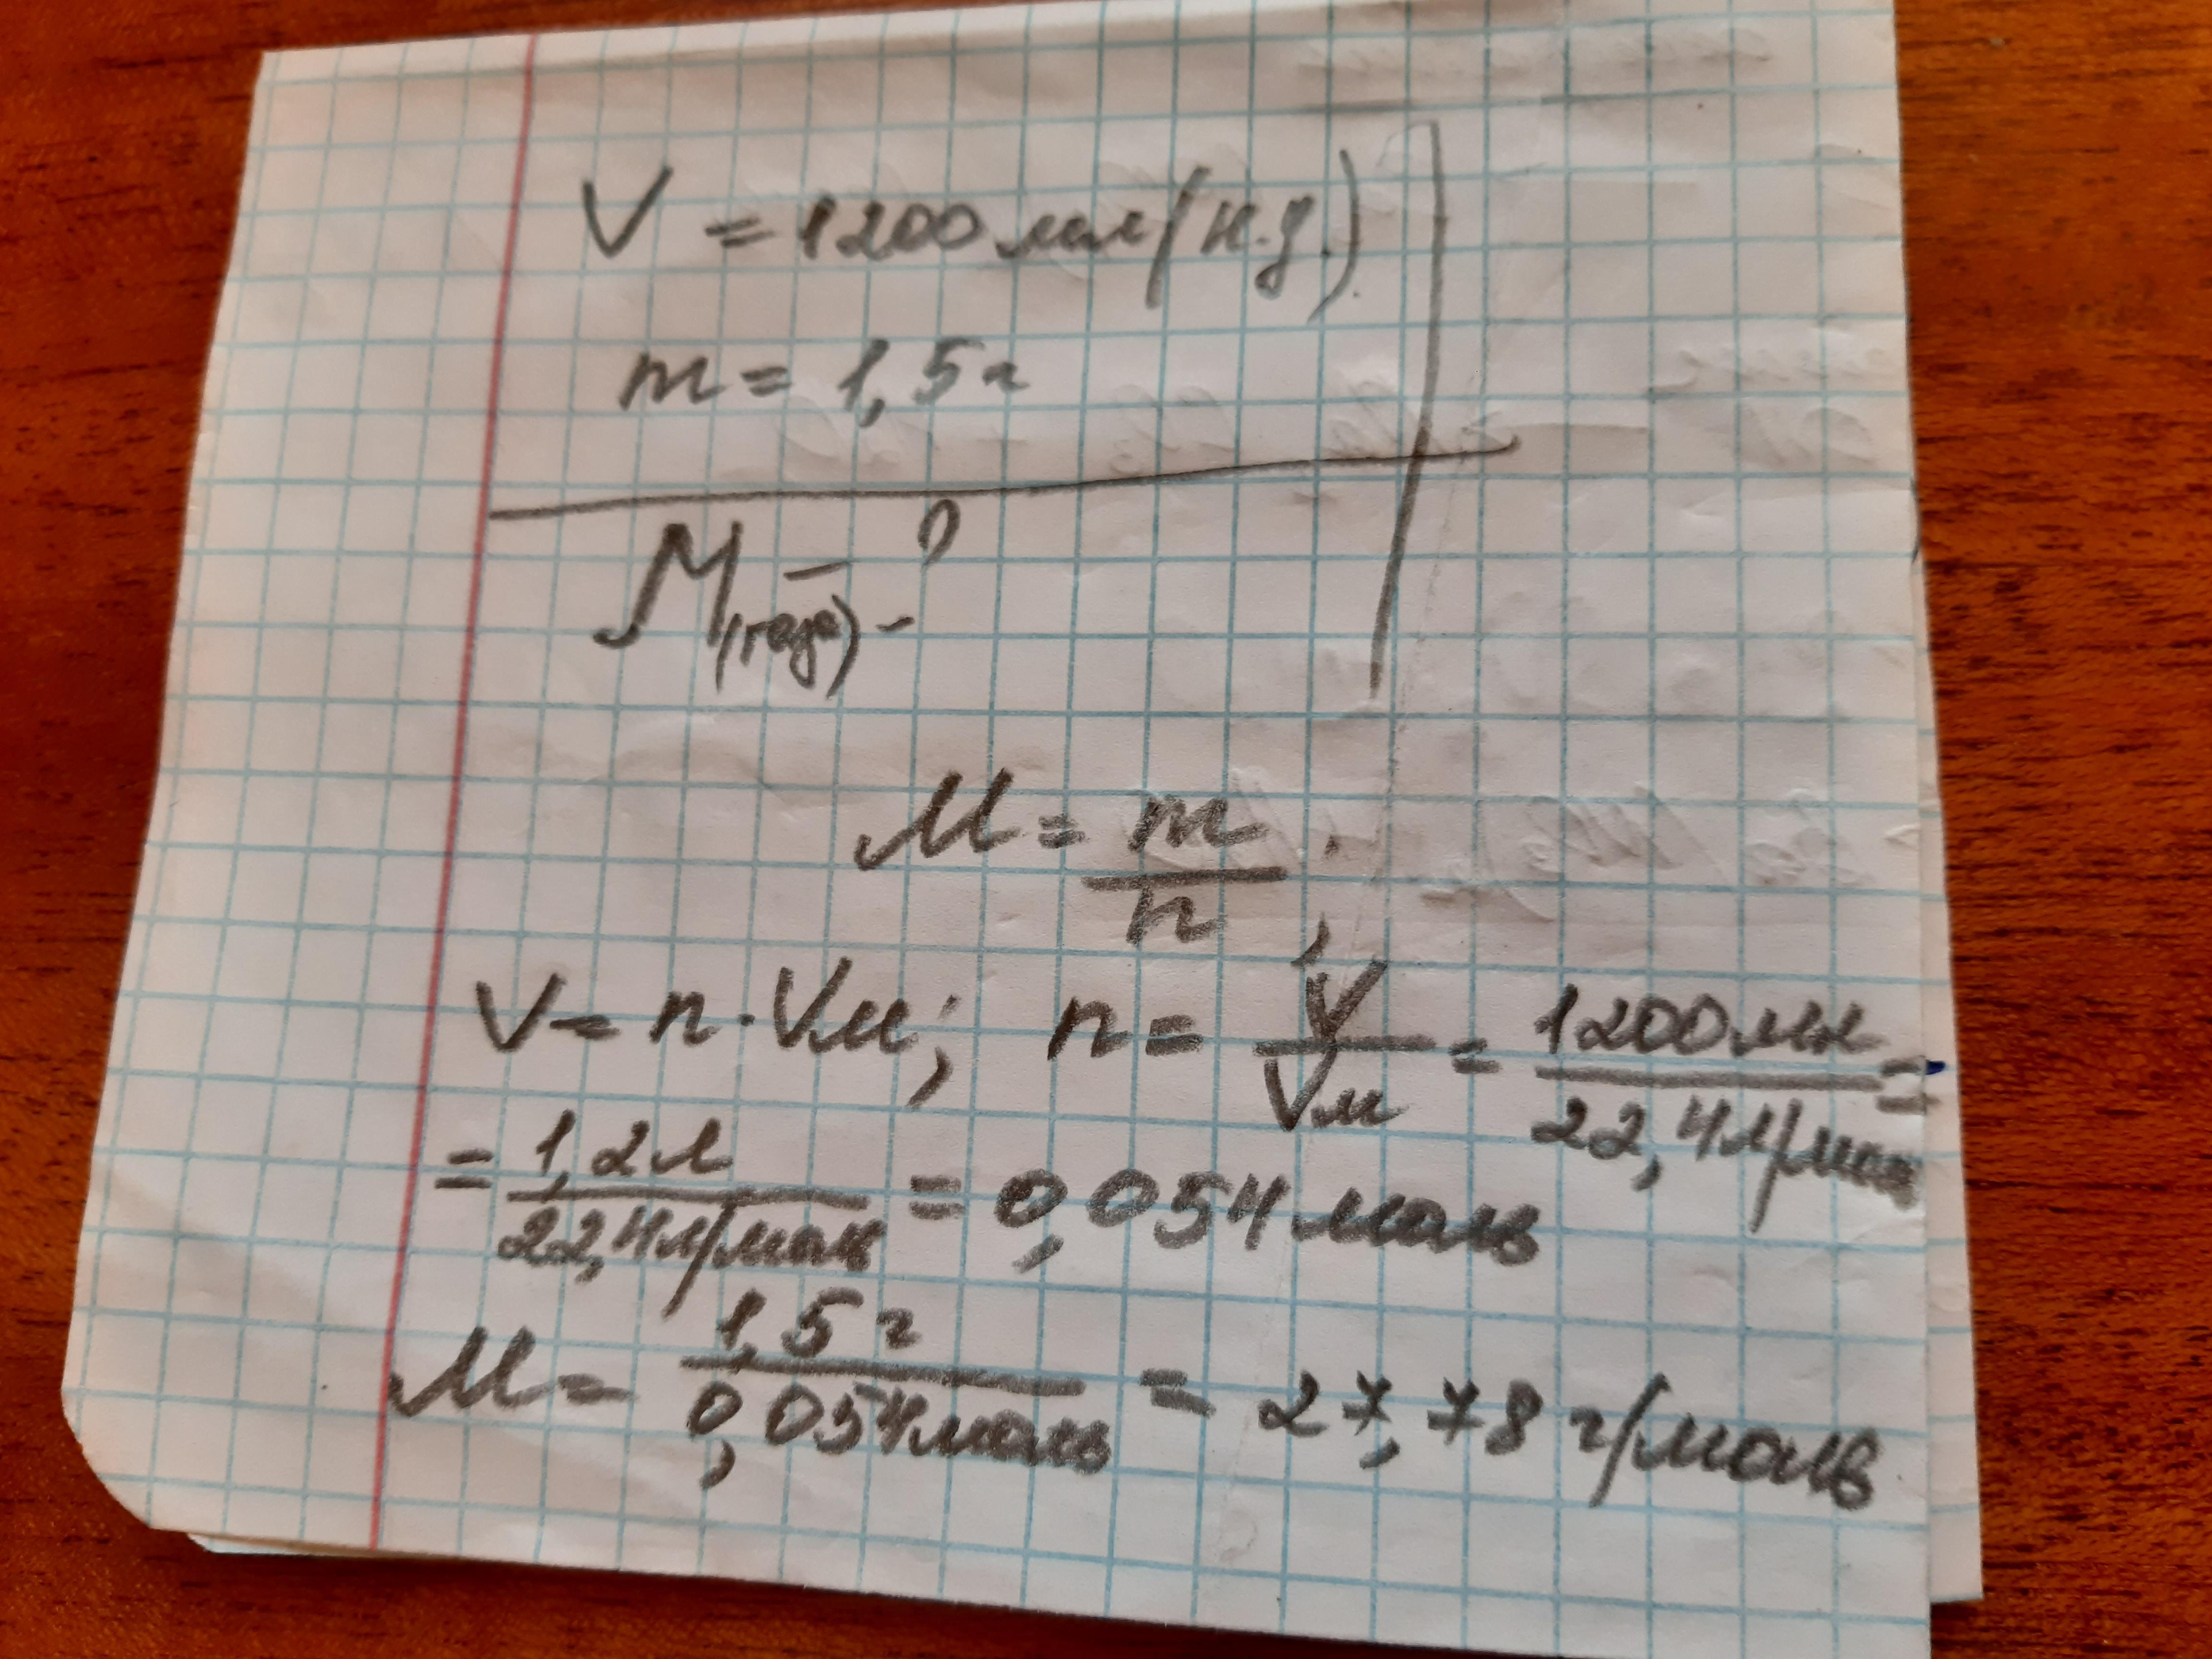 V = 1200 мл (н.у.)
m = 1,5 г
M(газа) - ?
M = m/n ;
V = n · Vм; n = V/Vм = 1200 мл / 22,4 л/моль =
= 1,2 л / 22,4 л/моль = 0,054 моль
M = 1,5 г / 0,054 моль = 27,78 г/моль